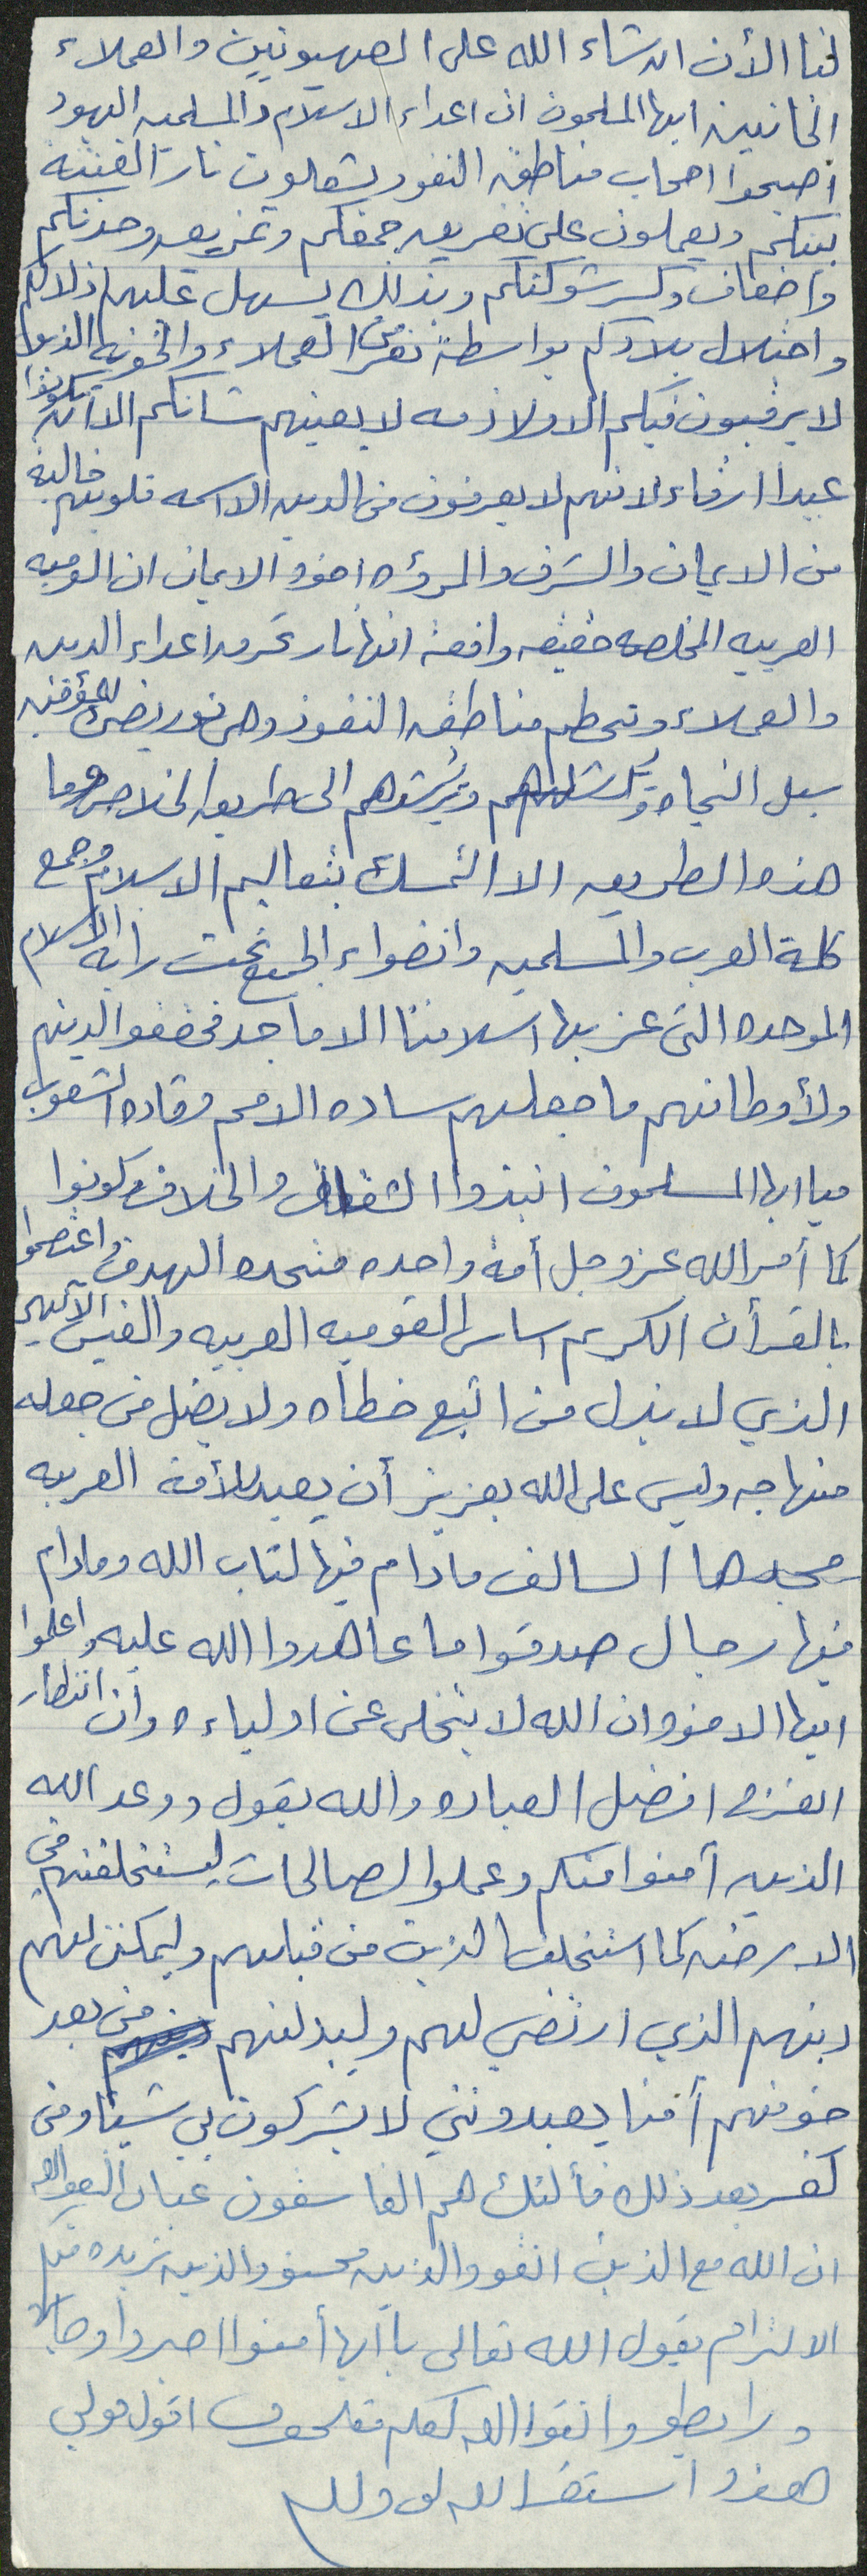 لنا الأن انشاء الله على الصهيونيين والعملاء
الخائنين ايها المسلمون ان اعداء الاسلام والمسلمين اليهود
أصبحوا اصحاب مناطق النفوذ يشعلون نار الفتنه
بينكم ويعملون على تفريق جمعكم وتمزيق وحدتكم
واضعاف وكسر شوكتكم وبذلك يسهل عليهم اذلالكم
واحتلال بلادكم بواسطة نفر من العملاء والخونه الذين
لا يرقبون فيكم الا ولا ذمه لا يعنيهم شانكم الا ان تكونوا
عبيدا ارقاء لانهم لا يعرفون من الدين الا اسمه قلوبهم خاليه
من الايمان والشرف والمروءه اخوه الايمان ان القوميه
العربيه المخلصه حقيقه واقعة انها نار تحرق اعداء الدين
والعملاء وتحطم مناطق النفوذ وهى نور يضئ للمؤمنين
سبل النجاه وترشدهم الى طريق الخلاص وما
هذه الطريق الا التمسك بتعاليم الاسلام وجمع
كلمة العرب والمسلمين وانضواء الجميع تحت راية الاسلام
الموحده التى عز بها اسلافنا الاماجد فحققوا لدينهم
ولأوطانهم ما جعلهم ساده الامم وقاده الشعوب
فيا ايها المسلمون انبذوا الشقاق والخلاف وكونوا
كما أمر الله عز وجل أمة واحده متحده الهدف واعتصموا
بالقرأن الكريم اساس القوميه العربيه والقبس الالهي
الذي لا يذل من اتبع خطاه ولا يضل من جعله
منهاجه وليس على الله بعزيز أن يعيد للأمة العربيه
مجدها السالف مادام فيها كتاب الله ومادام
فيها رجال صدقوا ما عاهدوا الله عليه واعلموا
ايها الاخوه ان الله لا يتخلى عن اولياءه وان انتظار
الفرج افضل العباده والله يقول ووعد الله
الذين آمنوا منكم وعملوا الصالحات ليستخلفنهم في
الارض كما استخلف الذين من قبلهم وليمكنن لهم
دينهم الذي ارتضي لهم وليبدلنهم من بعد
خوفهم أمنا يعبدونني لا يشركون بي شيئا ومن
كفر بعد ذلك فألئك هم الفاسقون عباد الله
ان الله مع الذين اتقو والذين محسنو والذين
الالتزام يقول الله تعالى ياأيها أمنوا اصبروا وصابروا
ورابطو واتقوا الله لعلكم تفلحون اقول قولي
هذا واستغفر الله لي ولكم